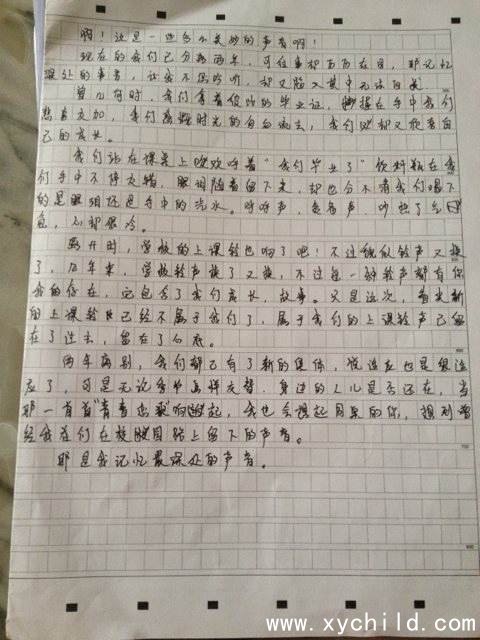 啊！这是一些多么美妙的声音啊！
现在的我们已分离两年，可往事却历历在目，那记忆
深处的声音，让我不停聆听，却又陷入其中无法自拔
曾几何时，我们拿着仅的毕业证，在手中我们
悲喜交加，我们感慨时光的匆匆流去，我们却又祝贺自
己的成长。
我们站在课桌上欢呼着"我们毕业了"饮料瓶在我
们手中不停交错，眼泪随着留下来，却也分不清我们喝下
的是眼泪还是手中的汽水。呼哈声，
离开时，学校的上课铃也响了吧！不过貌似铃声又换
了，几年来，学校铃声换了又换，不过每一种铃声都有你
我的存在，它包含了我们成长，故事。只是这次，首次新
的上课铃已经不属于我们了，属于我们的上课铃声已留
在了过去，留在了心底。
两年离别，我们都已有了新的集体，说适应也是很适
应了，可是无论季节怎样交替，身边的人儿是否还在，当
那一首首"青春"响起，我也会想起同桌的你，想到曾
经我们在校园路上留下的声音。
那是我记忆最深处的声音。
www.xychild.com